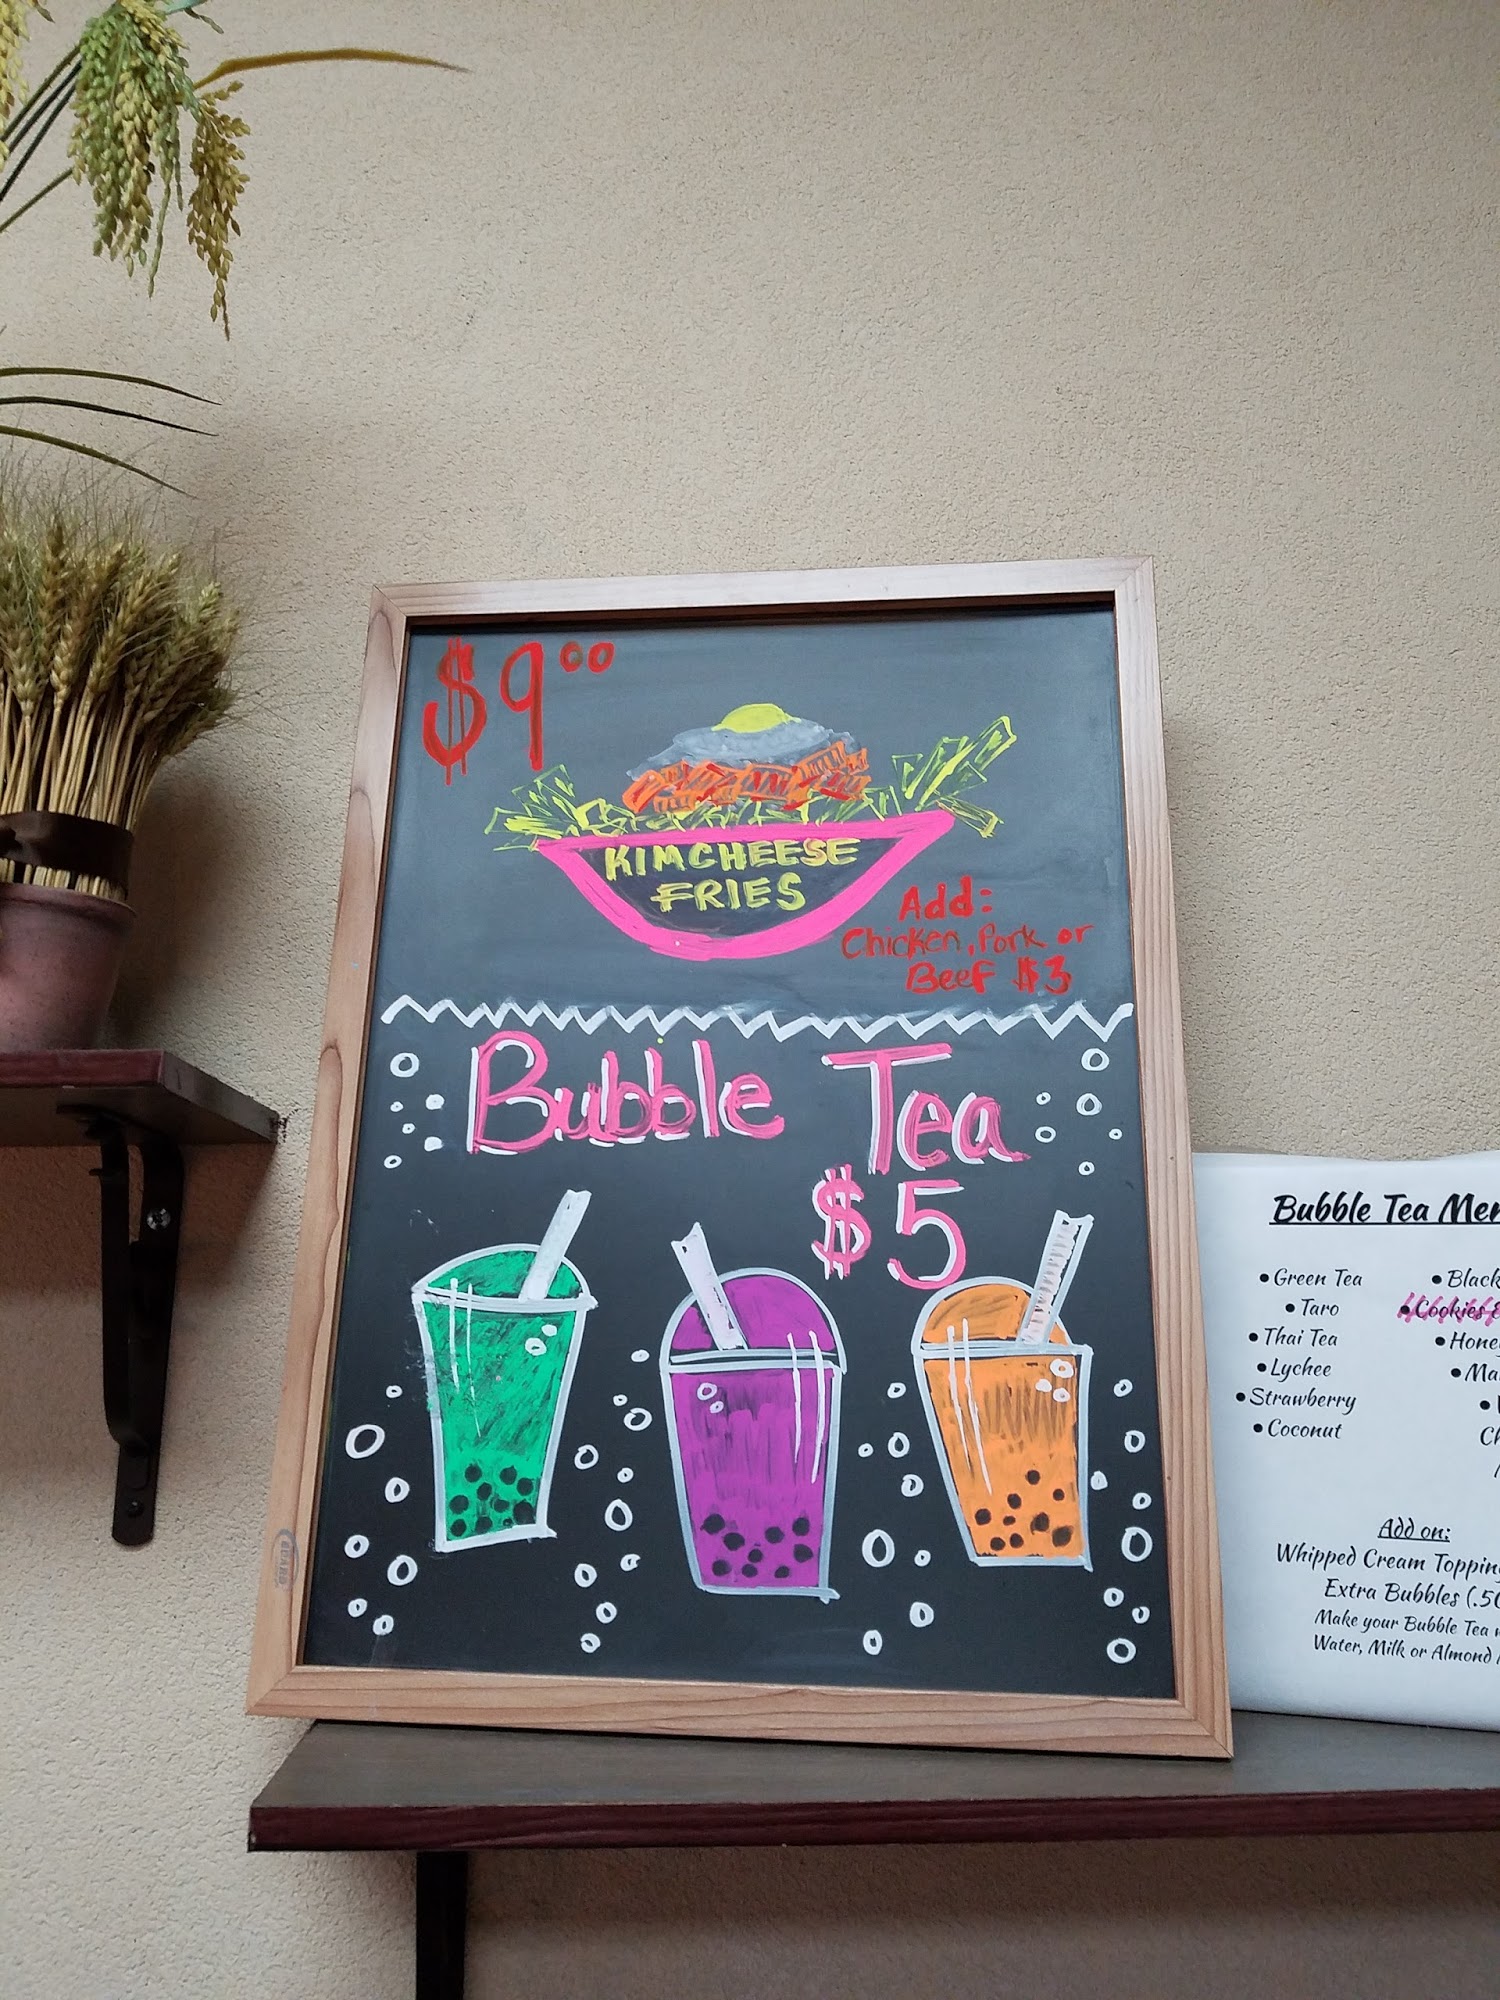 $9.00
KIMCHEESE
FRIES
Add:
Chicken, Pork or
Beef $3
Bubble Tea
$5
Bubble Tea
• Green Tea
• Taro
• Thai Tea
• Lychee
• Strawberry
• Coconut
• Black
• Cookies
Add on:
Whipped Cream
Extra Bubbles
Make your Bubble Tea
Water, Milk or Almond